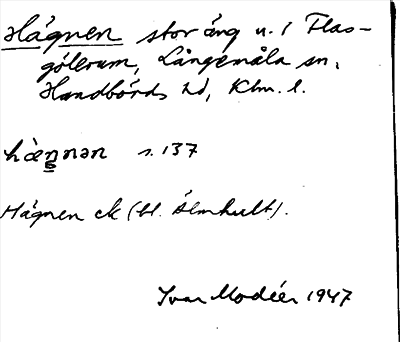 Hágnen stor äng u. / Flas-
gölerum, Långemåla sn,
Handbörds hd, Klm. l.
hæ̀ŋnən s. 137
Hägnen ek (bl. Älmhult).
Ivar Modéer 1947